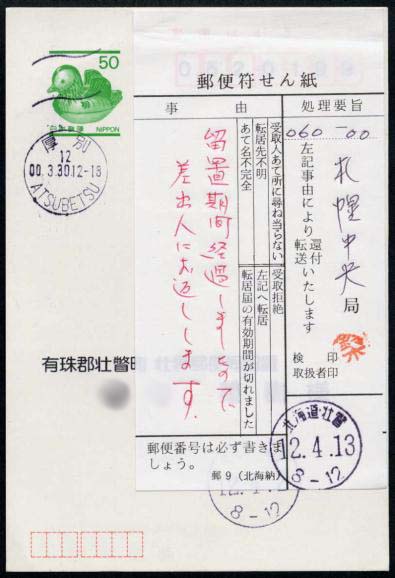 50
日本郵便
NIPPON
厚別
12
00.3.30.12-18
ATSUBETSU
郵便符せん紙
事由
処理要旨
060-00
札幌中央局
左記事由により還付転送いたします
検印
取扱者印
受取人あて所に尋ね当らない
転居先不明
あて名不完全
受取拒絶
左記へ転居
転居届の有効期間が切れました
留置期間経過しましたので
差出人にお返しします。
郵便番号は必ず書きま
しょう。
郵9(北海納)
北海道・壮瞥
12.4.13
8-12
8-12
有珠郡壮瞥町